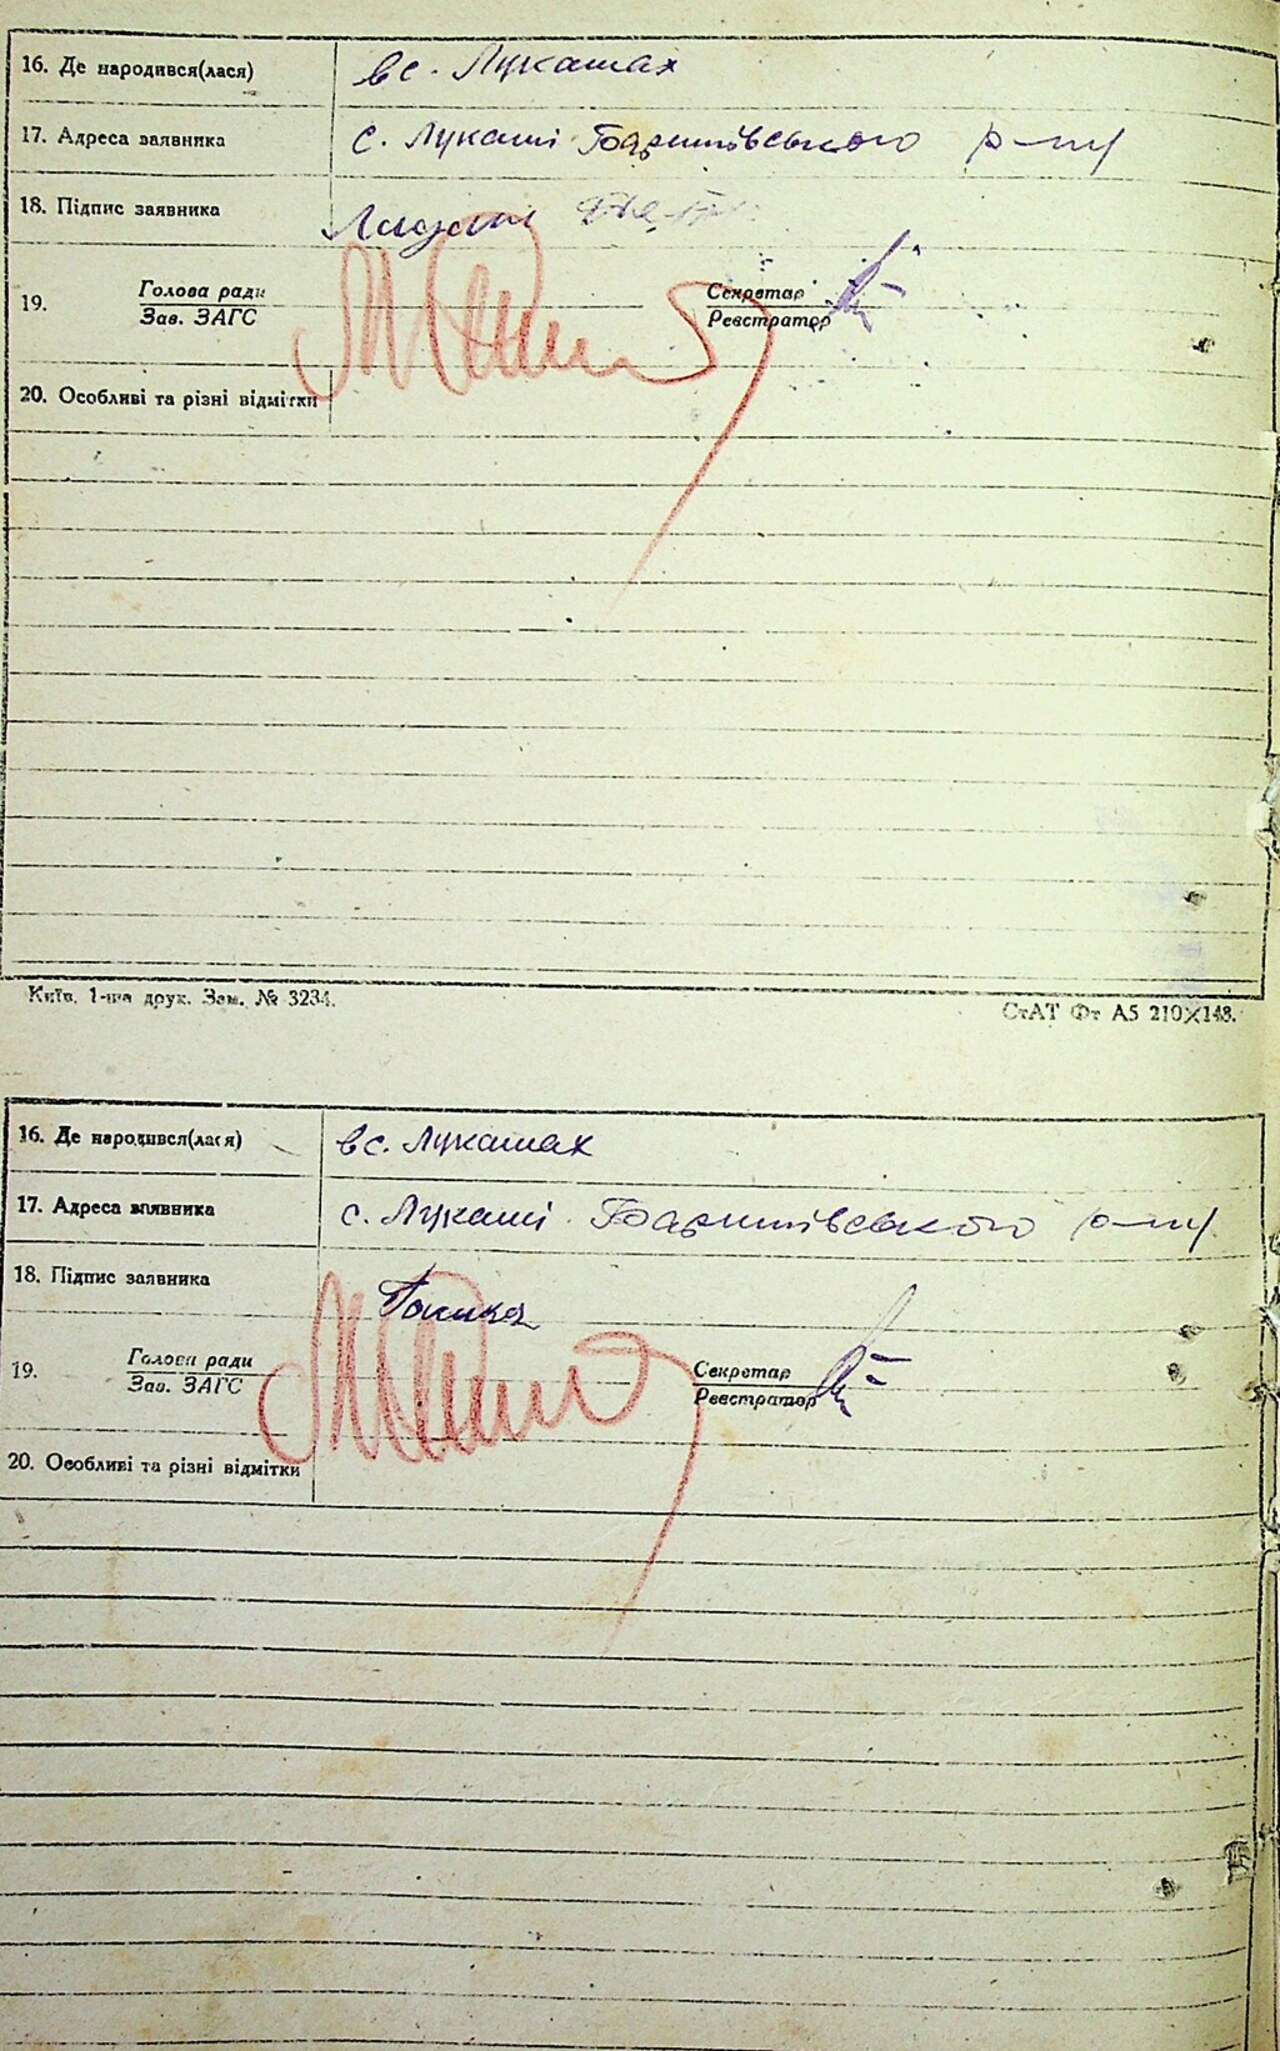 16. Де народився(лася) в с. Лукашах
17. Адреса заявника с. Лукаші Баришівського р-ну
18. Підпис заявника
19. Голова ради Секретар
Зав. ЗАГС Реєстратор
20. Особливі та різні відмітки
Київ, 1-ша друк. Зам. № 3234.
СтАТ Фт А5 210×148.
16. Де народився(лася) в с. Лукашах
17. Адреса заявника с. Лукаші Баришівського р-ну
18. Підпис заявника
19. Голова ради Секретар
Зав. ЗАГС Реєстратор
20. Особливі та різні відмітки